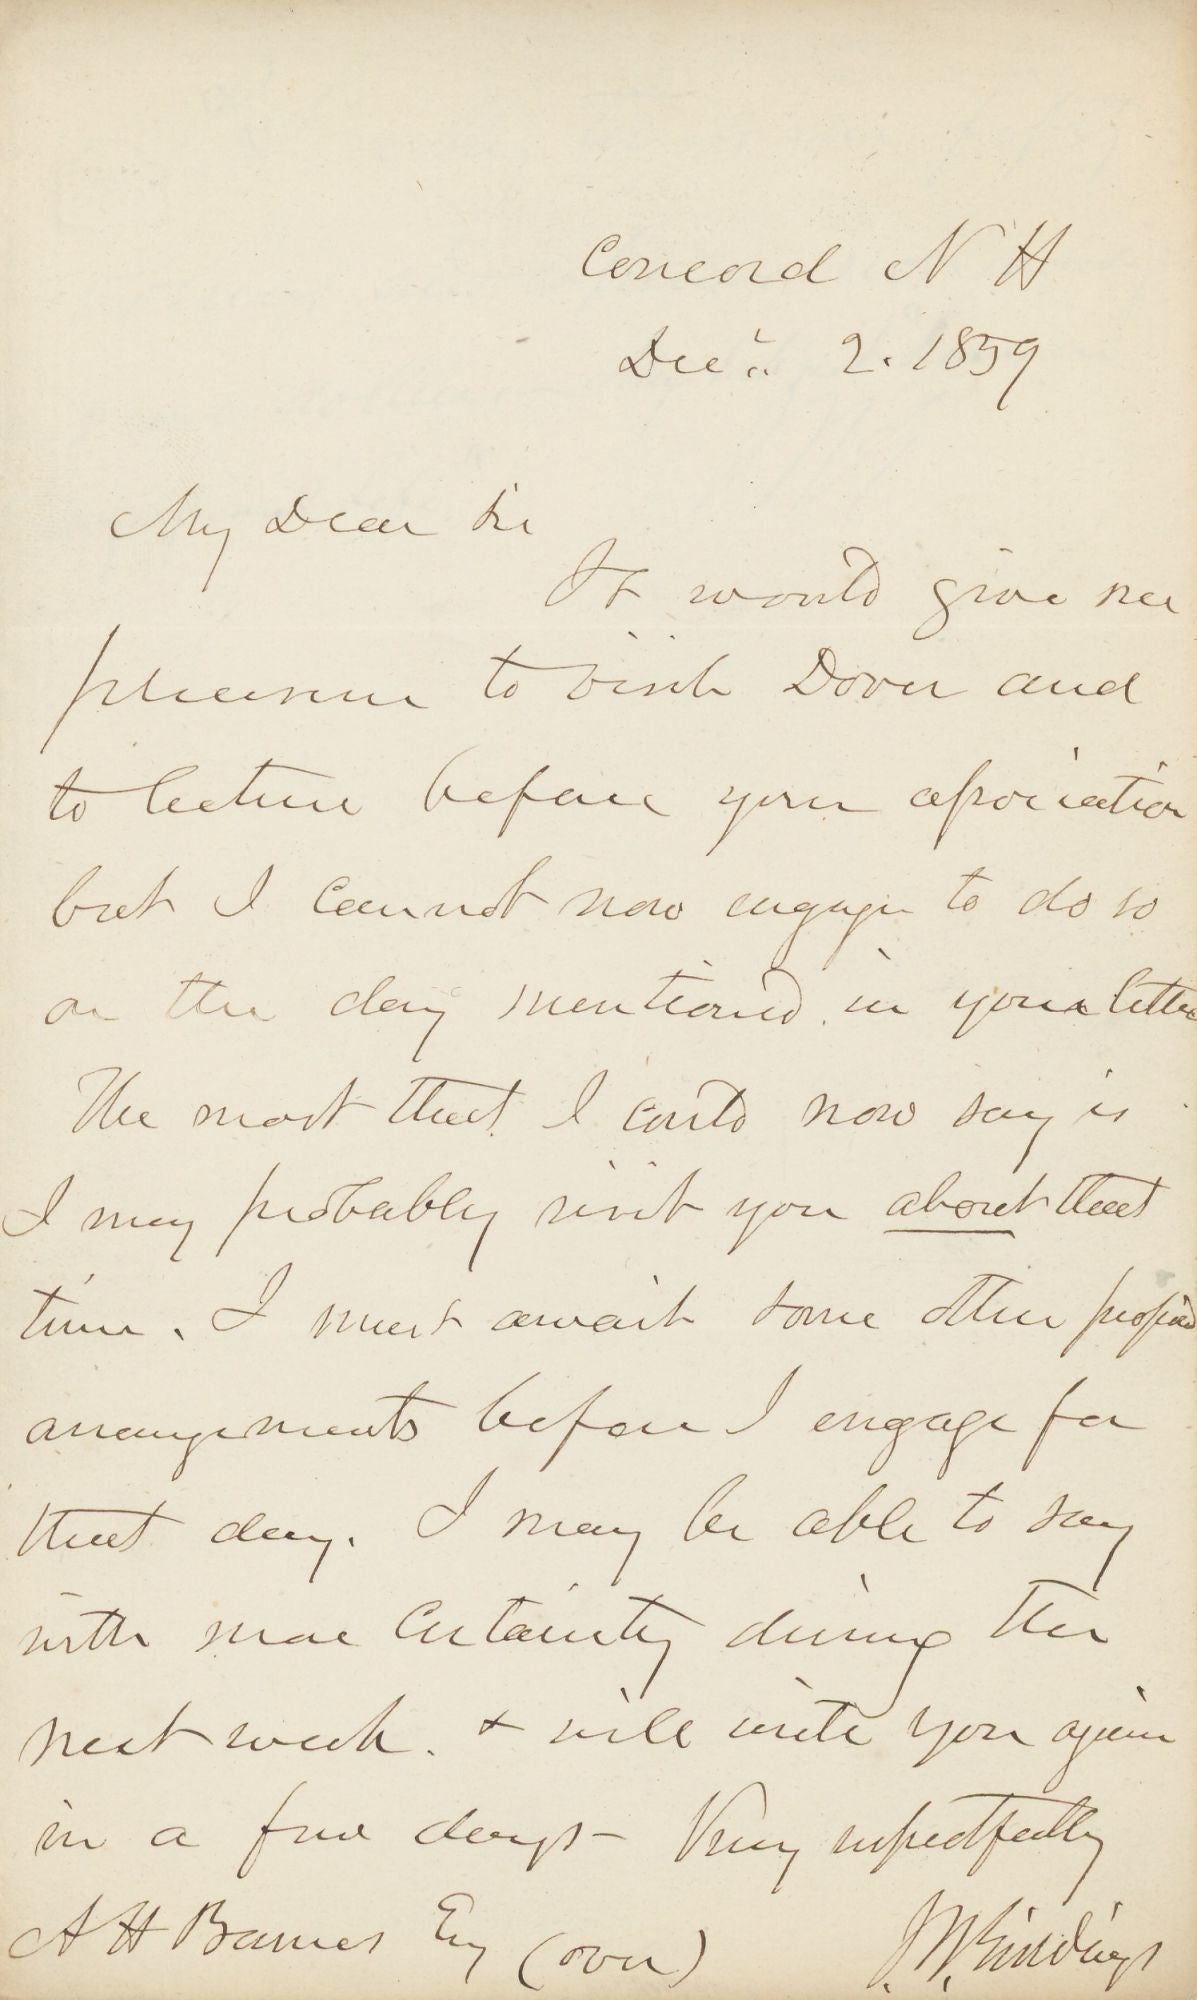 Concord N H
Decr. 2. 1859
My Dear Sir
It would give me
pleasure to visit Dover and
to lecture before your association
but I cannot now engage to do so
on the day mentioned in your letter
The most that I could now say is
I may probably visit you about that
time. I must await some other proposed
arrangements before I engage for
that day. I may be able to say
with more certainty during the
next week. + will write you again
in a few days - Very respectfully
A H Barnes Esq (over) Giddings